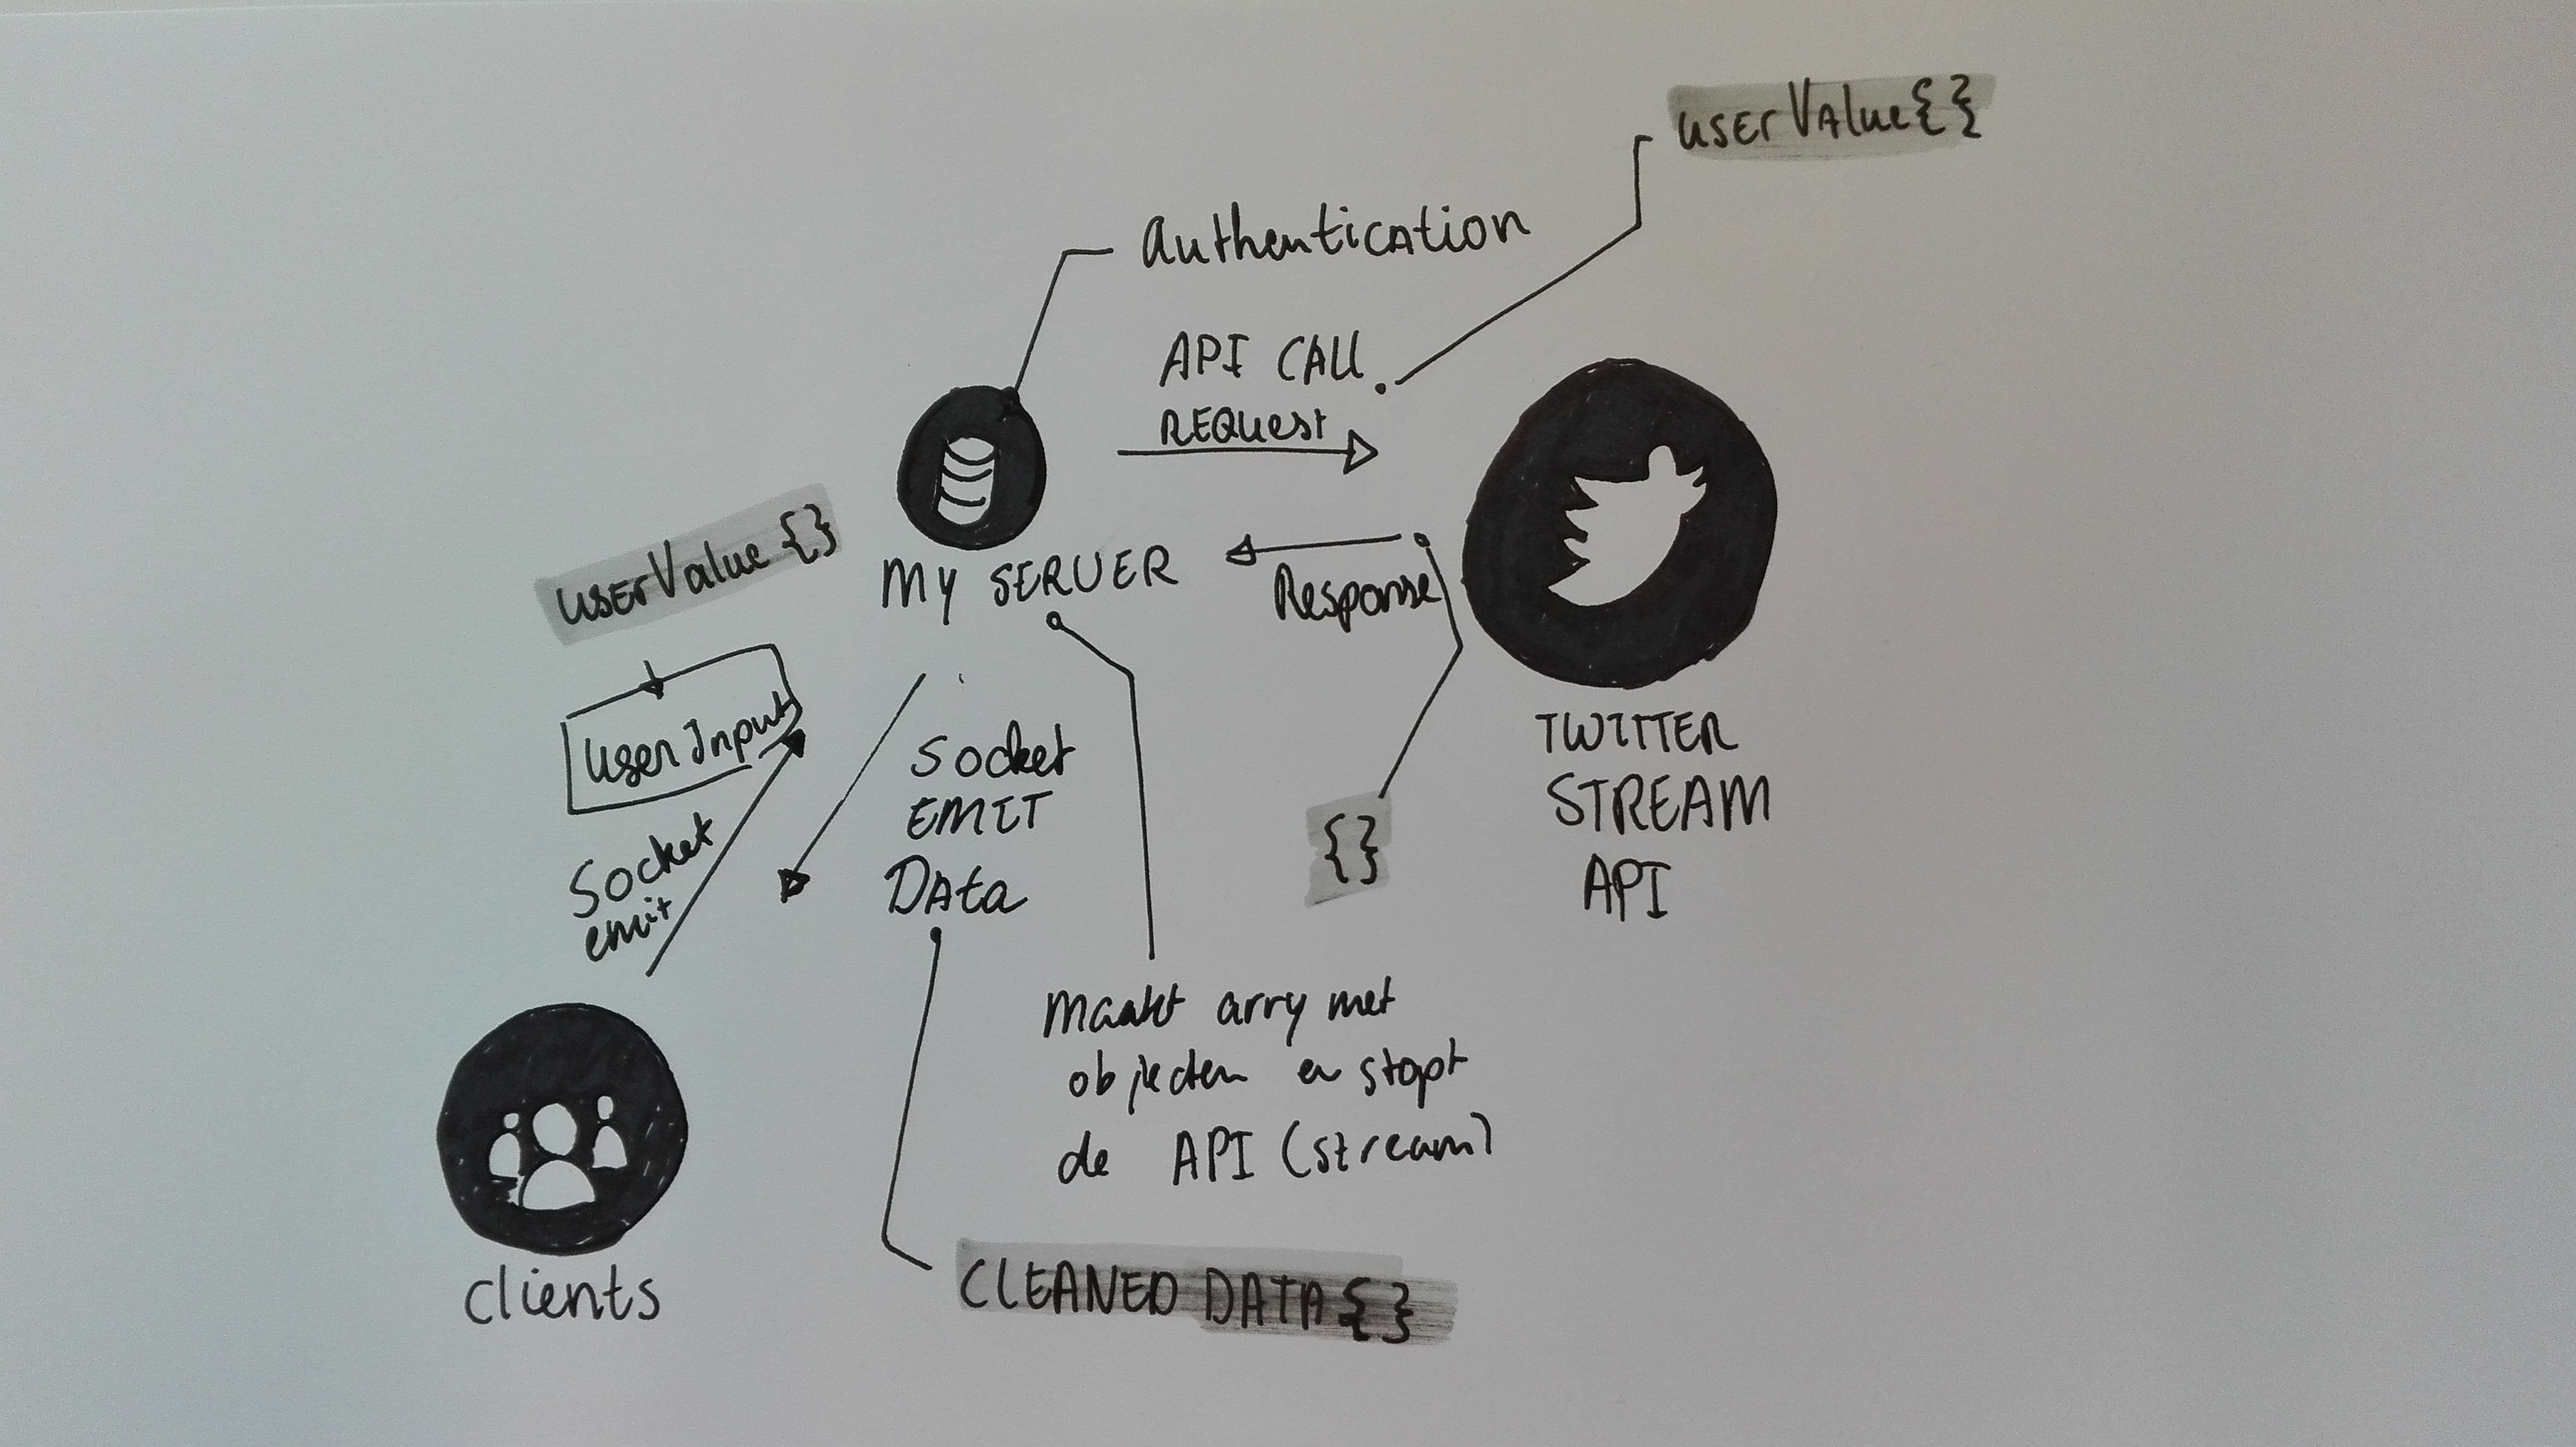 userValue{}
Authentication
API CALL
REQuest
userValue {}
MY SERVER
Response
userInput
Socket
emit
Socket
EMIT
DAta
{}
TWITTER
STREAM
API
Maakt arry met
objecten en stopt
de API (stream)
clients
CLEANED DATA{}